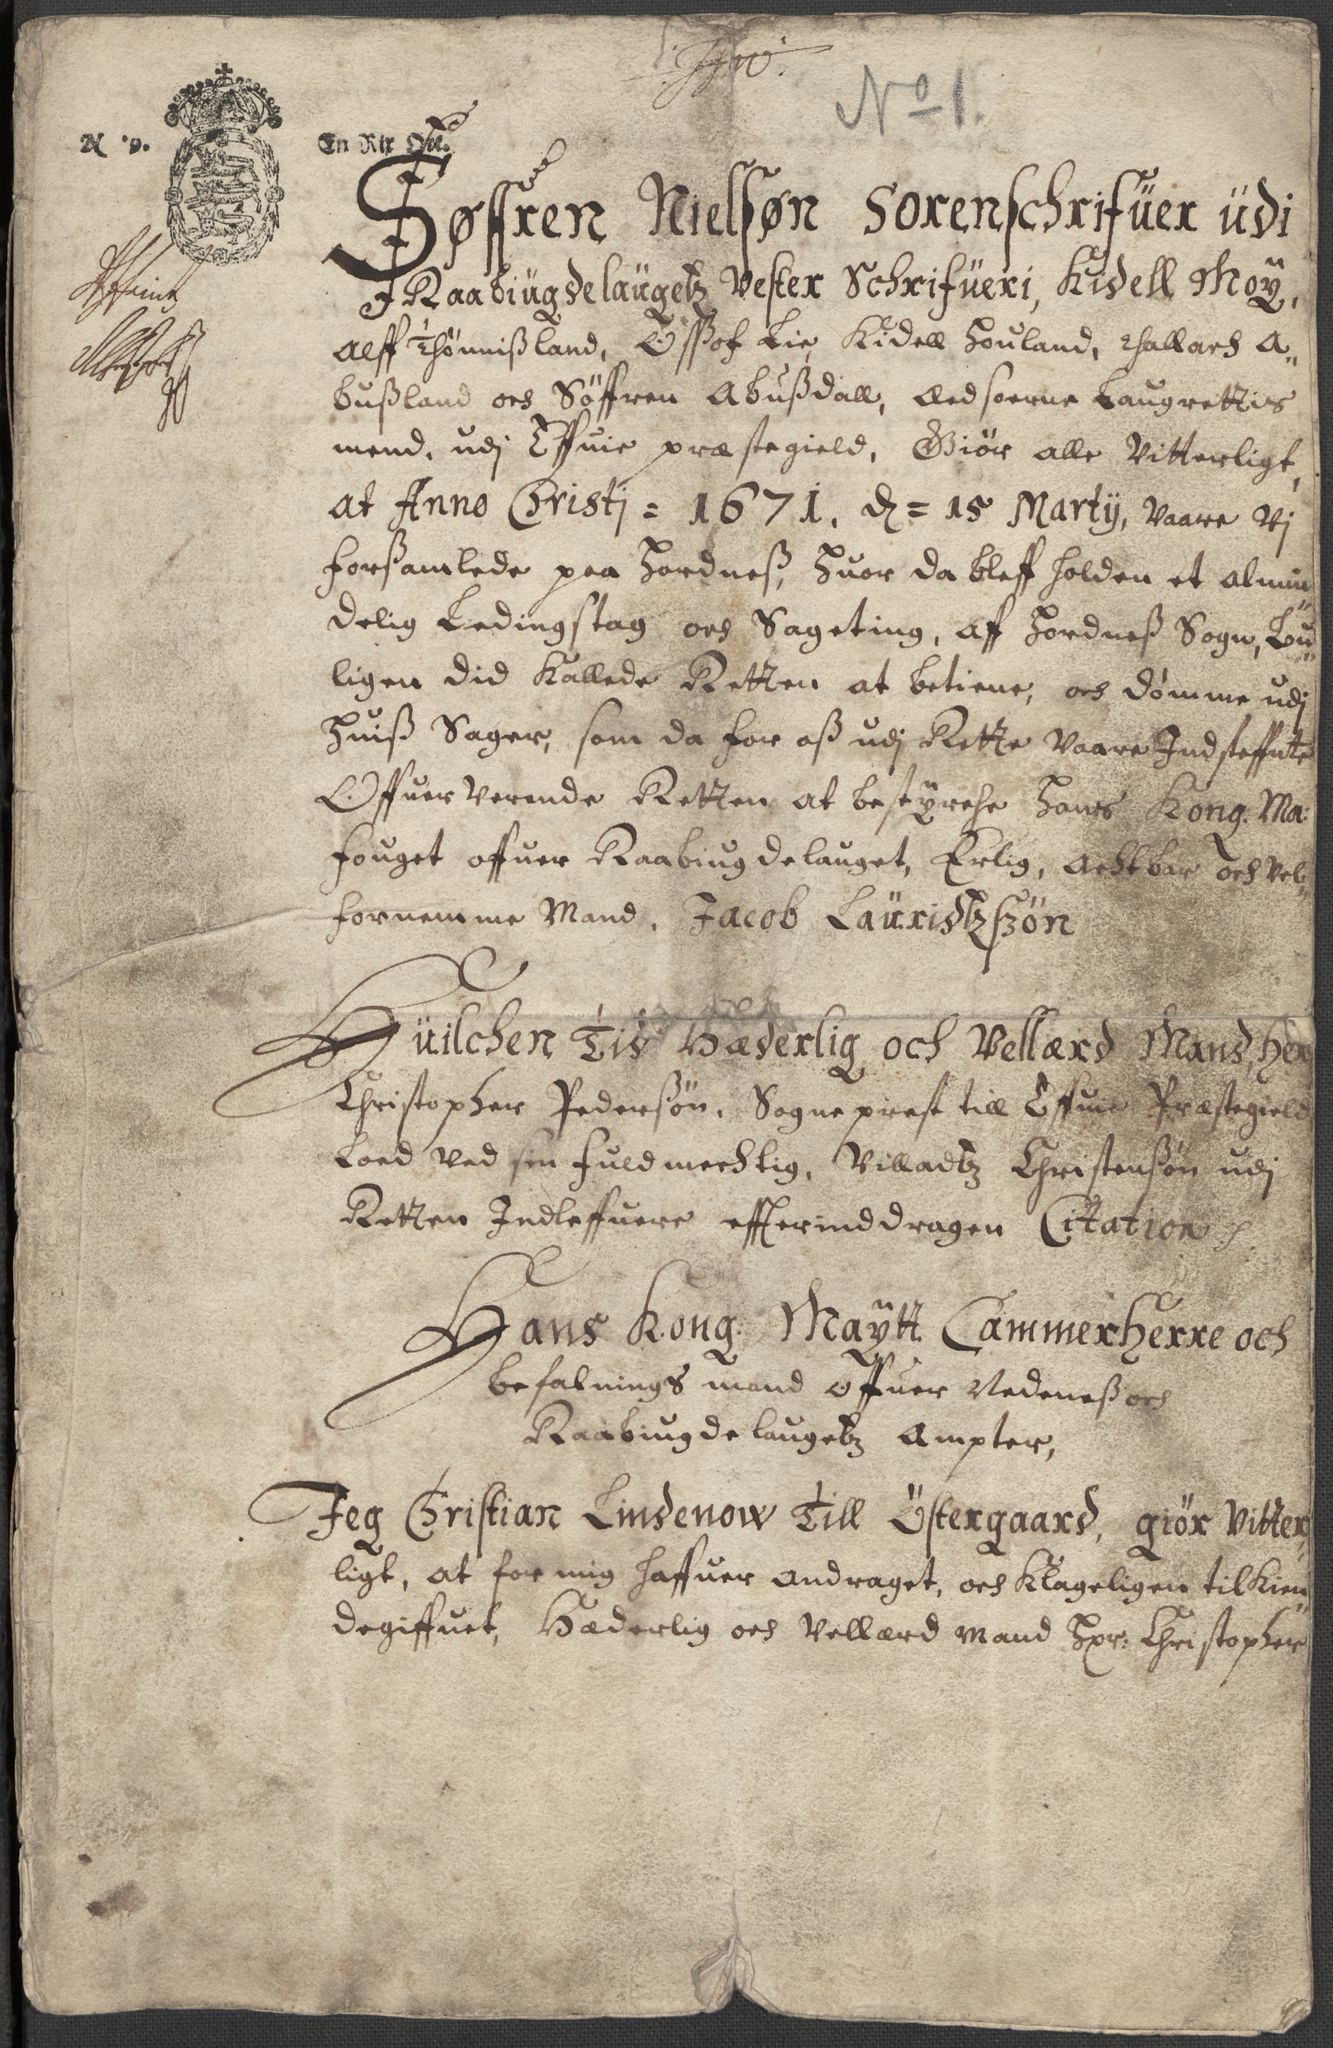 No 1.
N 9.
En Rix Ort.
Søffren Nielsøn Sorenschrifüer üdi
Raabiügdelaügetz Vester Schrifüeri, Kidell Moÿ,
Alff Thönnißland, Ossof Lie, Kidell Houland, Thallach A„
bußland och Söffren Abußdall, Aedsoerne Laugrettis
mend, udj Effuie præstegield, Giör alle Vitterligt,
at Anno Christj = 1671, d = 15 Martÿ, Vaare Vj
forßamlede paa Hordneß, Huor da bleff holden et almin„
delig Ledingstag och Sageting, af Hordneß Sogn, Lou„
ligen did Kallede Retten at betiene, och dømme udj
Huiß Sager, som da for oß udj Rette Vaare Indsteffnte
Offuer Verende Retten at bestÿrche Hans Kong. Ma:
fouget offuer Raabiugdelauget, Erlig, Achtbar och Vel„
fornemme Mand, Jacob Laüridtzßön
Hüilchen Tid Hæderlig och Vellærd Mand, Her
Christopher Pederßön, Sogneprest till Effuie Præstegield
Loed Ved sin fuldmechtig, Villadtz Christensßön udj
Retten Indleffuere effterinddragen Citation
Hans Kong. Maÿtt Cammerherre och
befalnings mand offuer Nedeneß och
Raabiugdelaugetz Ampter,
Jeg Christian Lindenow Till Östergaard, giör Vitter„
ligt, at for mig haffuer andraget, och Klageligen tilkien„
degiffuet, Hæderlig och Vellærd Mand Hr: Christopher